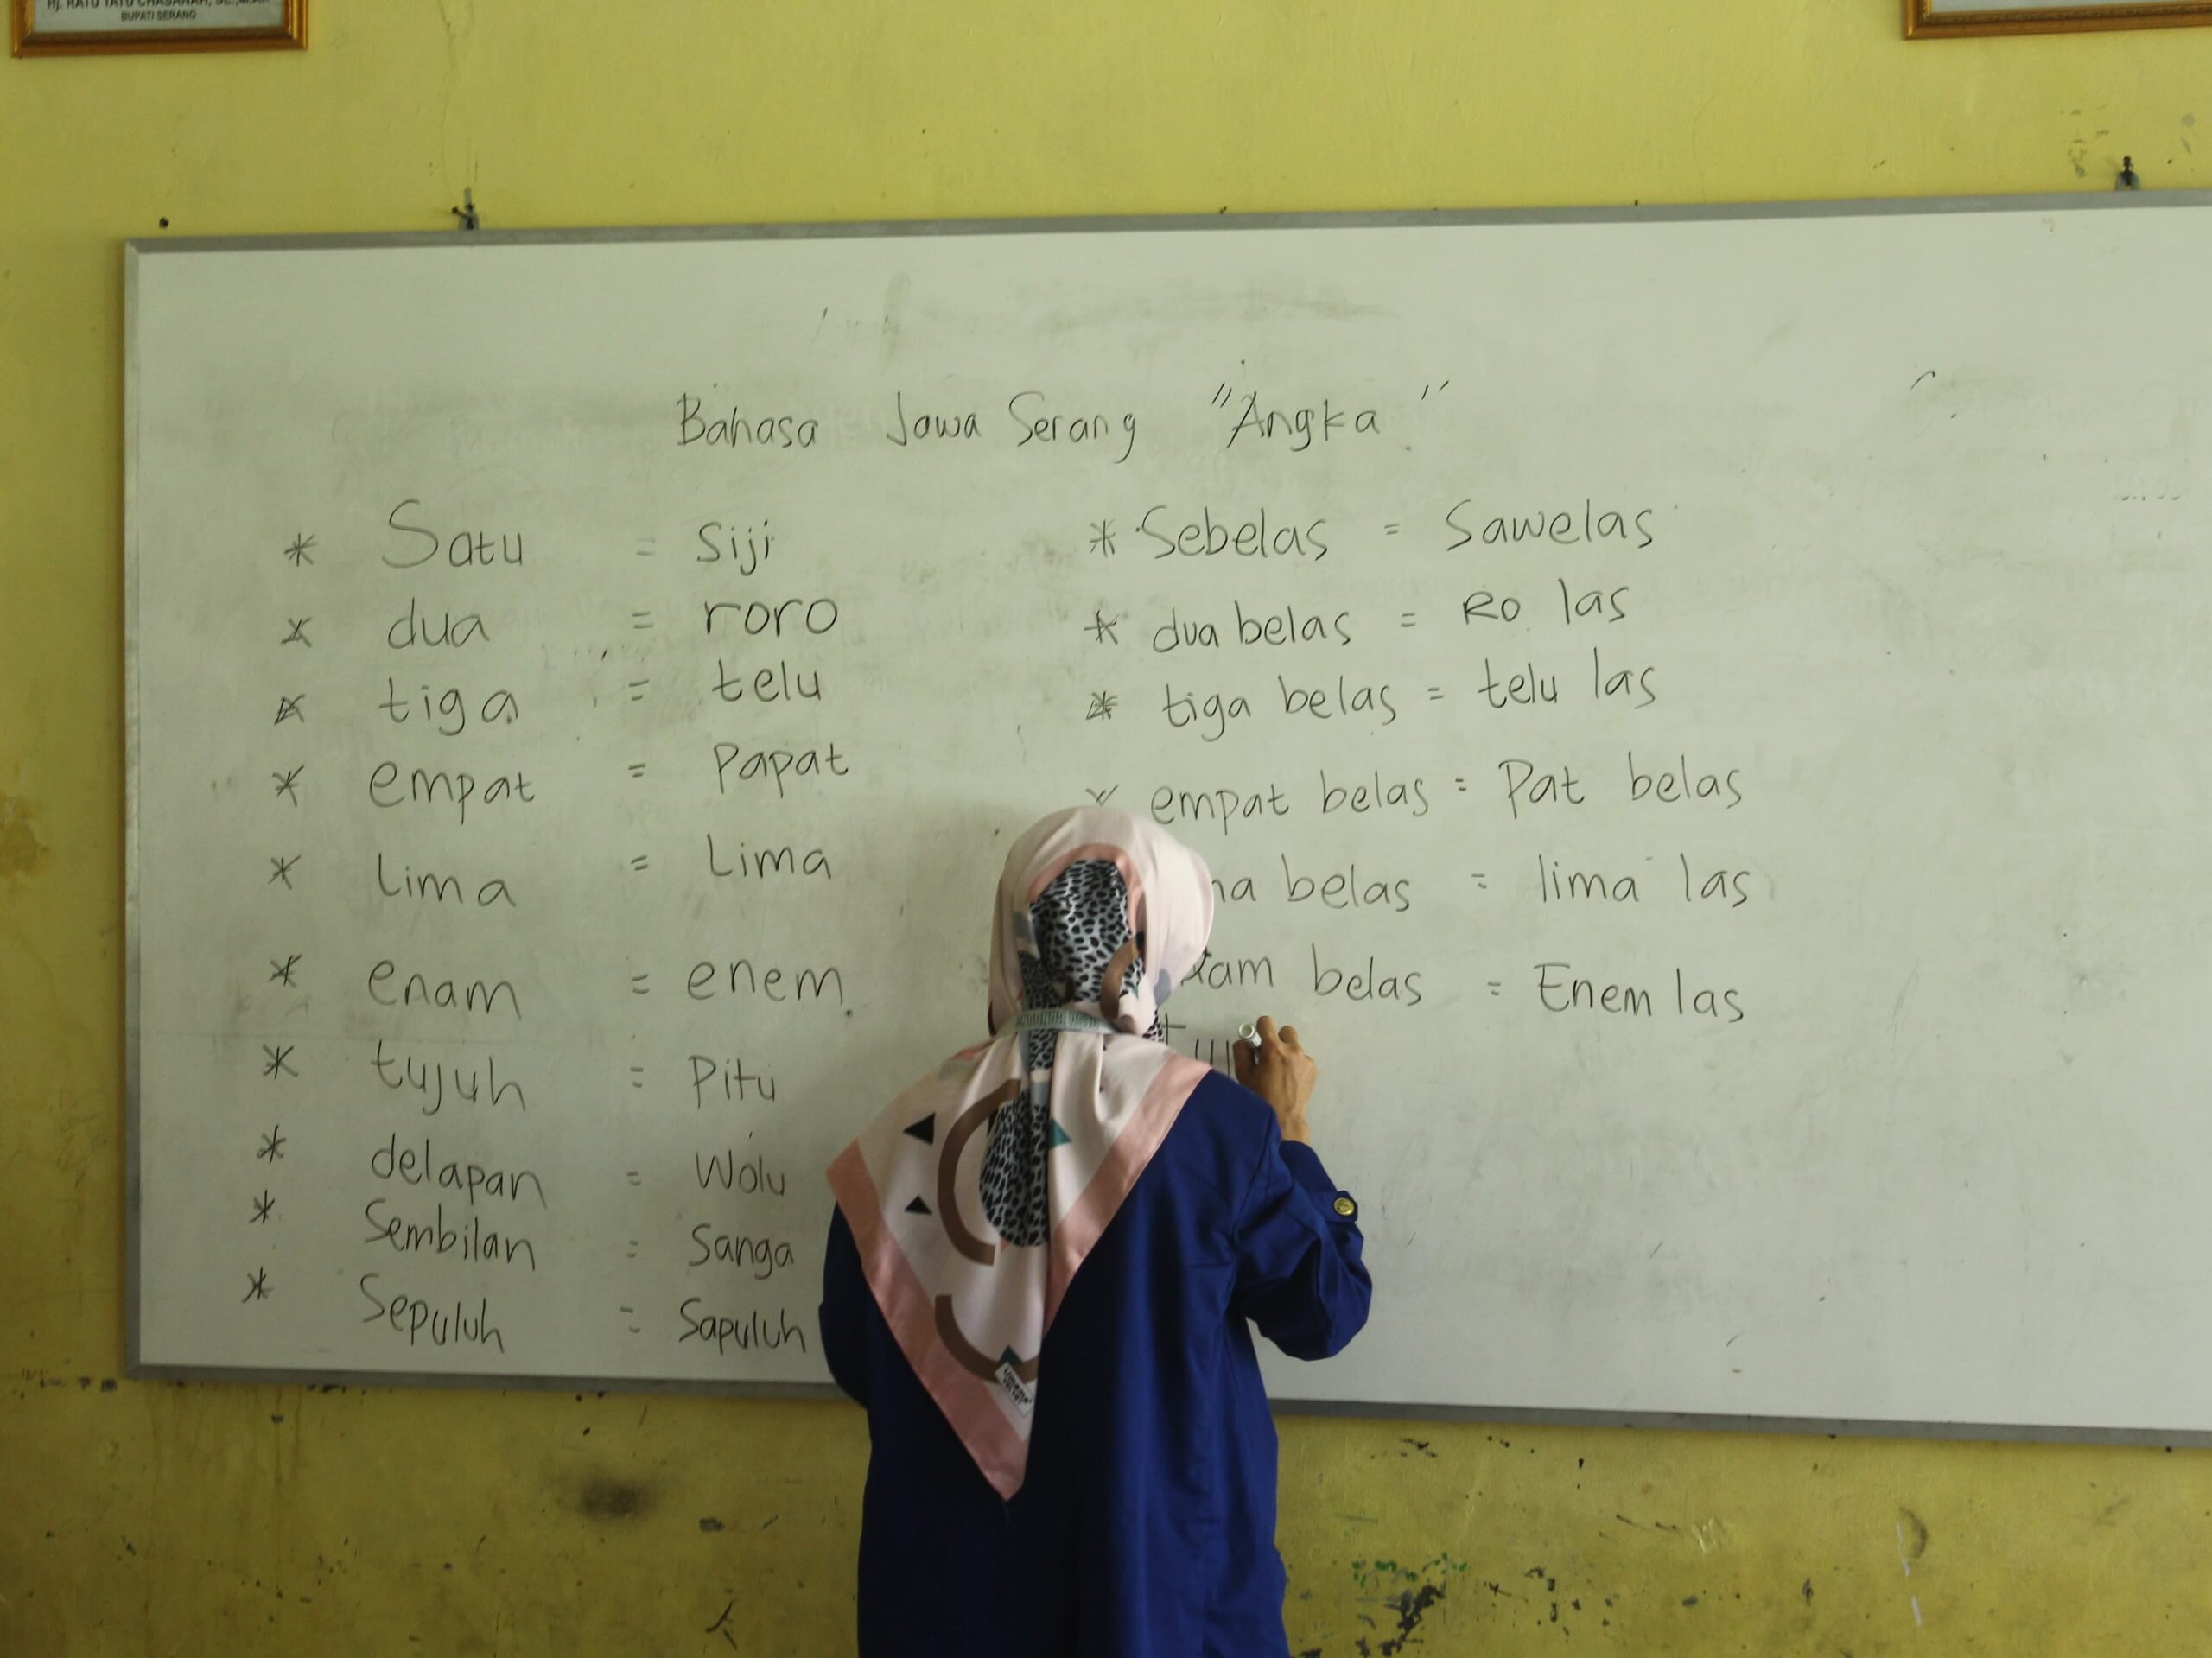 Hj. RATU TATU CHASANAH, SE.,M.Ak
BUPATI SERANG
Bahasa Jawa Serang "Angka"
* Satu = Siji
* dua = roro
* tiga = telu
* empat = Papat
* Lima = Lima
* enam = enem
* tujuh = Pitu
* delapan = Wolu
* Sembilan = Sanga
* Sepuluh = Sapuluh
* Sebelas = Sawelas
* dua belas = Ro las
* tiga belas = telu las
* empat belas = Pat belas
belas = lima las
belas = Enem las